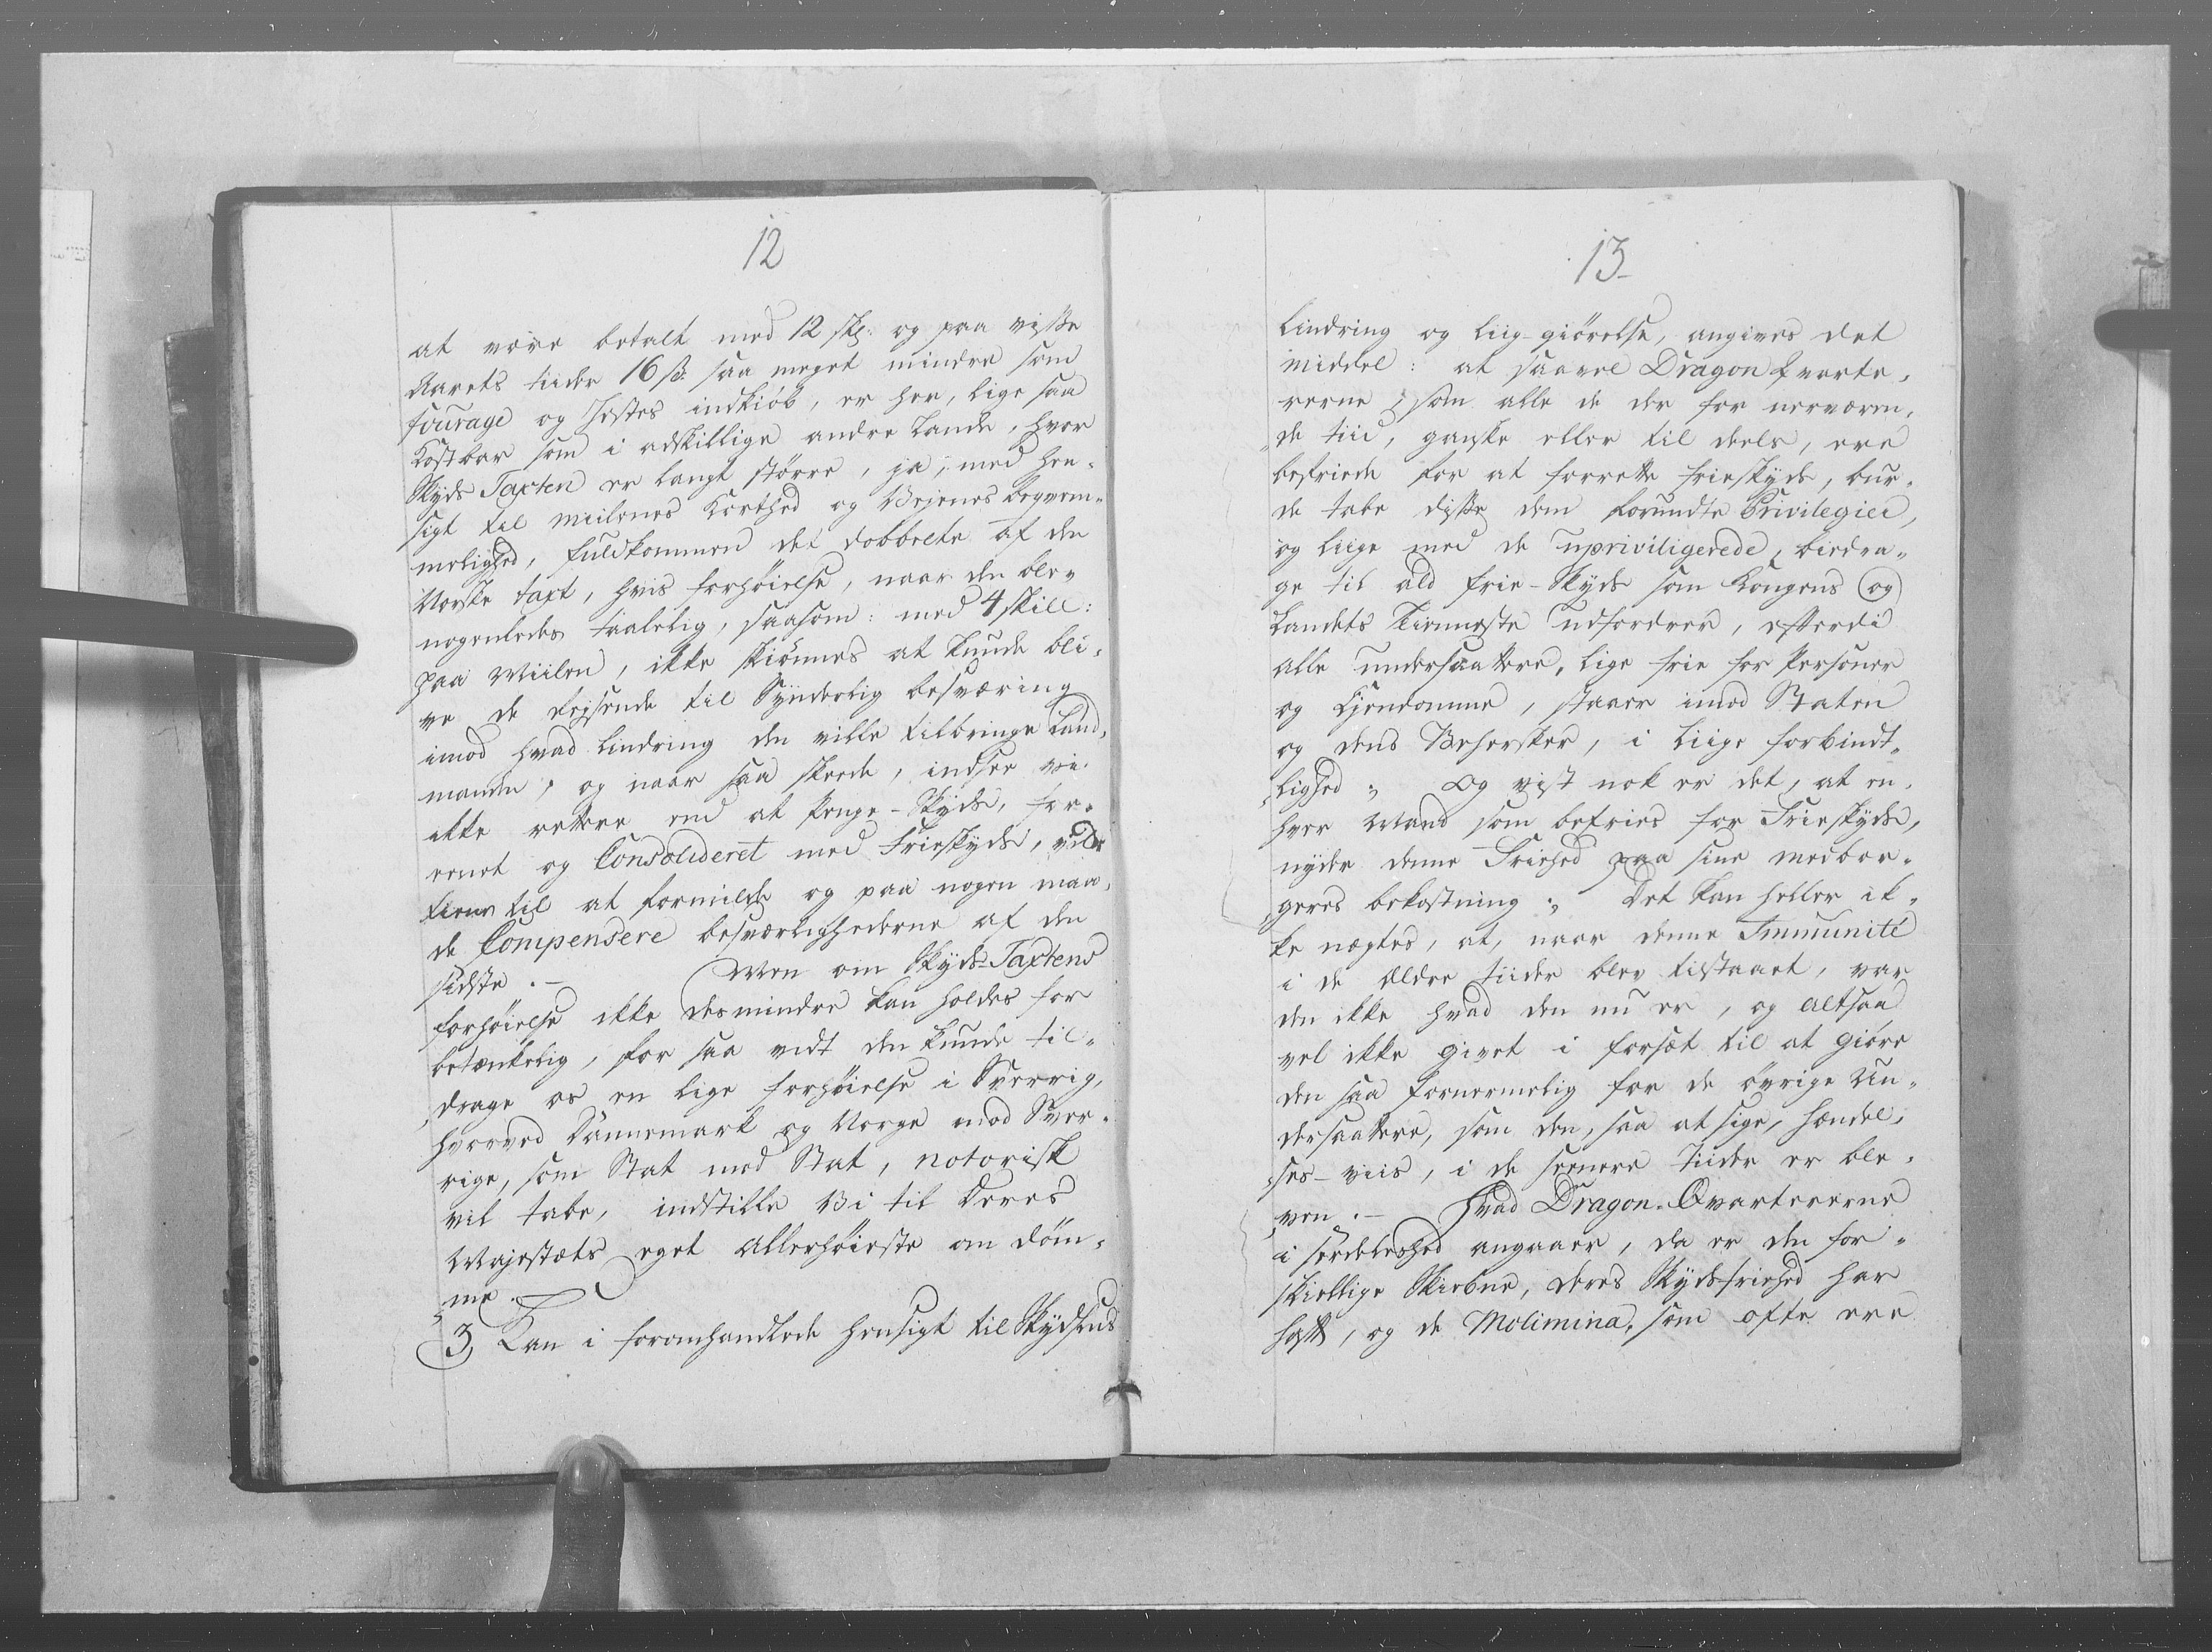 12
at være betalt med 12 sk: og paa visse
Aarets tiider 16 s: saa meget mindre som
fourage og Hestes indkiøb, er her, lige saa
kostbar som i adskillige andre Lande, hvor
Skyds Taxten er langt større, ja, med hen-
sigt til Miilenes Korthed og Vejenes beqvem-
melighed, fuldkommen det dobbelte af den
Norske taxt, hvis forhøielse, naar den blev
nogenledes taalelig, saasom: med 4 skill:
paa Miilen, ikke skiønnes at kunde bli-
ve de Rejsende til Synderlig besværing
imod hvad lindring den ville tilbringe Land-
manden, og naar saa skeede, indsee vi
ikke rettere end at penge-Skyds, for-
eenet og Consolideret med Frieskyds, vilde
tiene til at formilde og paa nogen maa-
de Compensere besværlighederne af den
sidste. – Men om Skyds-Taxtens
forhøielse ikke desmindre kan holdes for
betænkelig, for saa vidt den kunde til-
drage os en lige forhøielse i Sverrig,
hvorved Dannemark og Norge mod Sver-
rige, som Stat mod Stat, notorisk
vil tabe, indstille Vi til Deres
Majestæts eget Allerhøieste om døm-
me.
3, Kan i foromhandlede hensigt til Skydsens
13
Lindring og liig-giørelse, angives det
middel: at saavel Dragon Qvarte-
rerne, som alle de der for nerværen-
de tiid, ganske eller til deels, ere
befriede for at forrette frieskyds, bur-
de tabe disse dem forundte Privilegier,
og liige med de upriviligerede, bidra-
ge til ald frie-Skyds som Kongens og
Landets Tienneste udfordrer, efterdi
alle undersaattere, lige frie for Personer
og Ejendomme, staaer imod Staten
og dens Behersker, i liige forbindt-
lighed; Og vist nok er det, at en-
hver Mand som befries for Frieskyds,
nyder denne Friehed paa sine medbor-
geres bekostning; Det kan heller ik-
ke nægtes, at, naar denne Immunité
i de Ældre tiider blev tilstaaet, var
den ikke hvad den nu er, og altsaa
vel ikke givet i forsæt til at giøre
den saa fornermelig for de øvrige Un-
dersaattere, som den, saa at sige, hændel-
ses-viis, i de seenere Tiider er ble-
ven. – Hvad Dragon-Qvartererne
i serdeleshed angaaer, da er den for-
skiellige Skiebne, deres Skydsfriehed har
haft, og de Molimina, som ofte ere